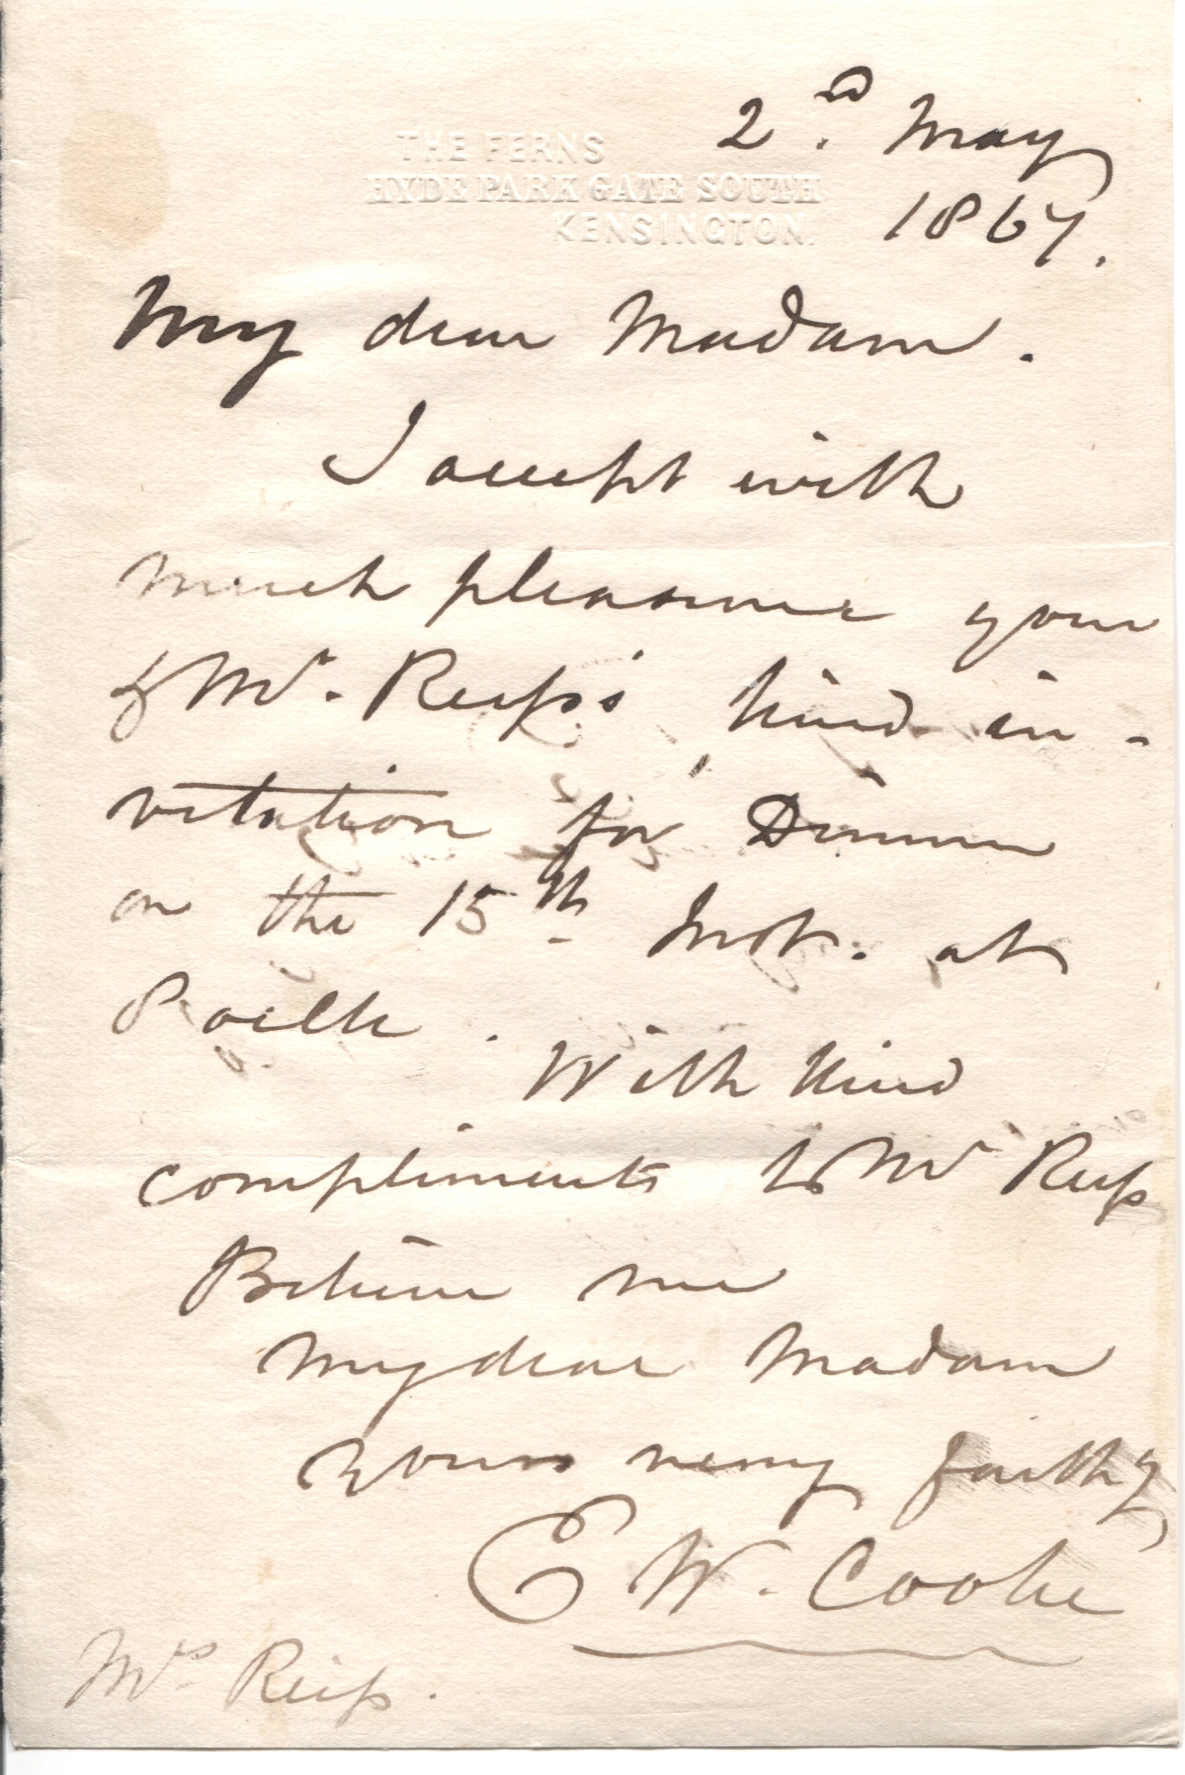 THE FERNS
HYDE PARK GATE SOUTH
KENSINGTON.
2nd. May
1867.
My dear Madam.
I accept with
much pleasure your
& Mr. Reiss's kind in-
vitation for Dinner
on the 15th. Inst. at
8 oclk. With kind
compliments to Mr Reiss
Believe me
My dear Madam
yours very faithy
E W. Cooke
Mrs Reiss.